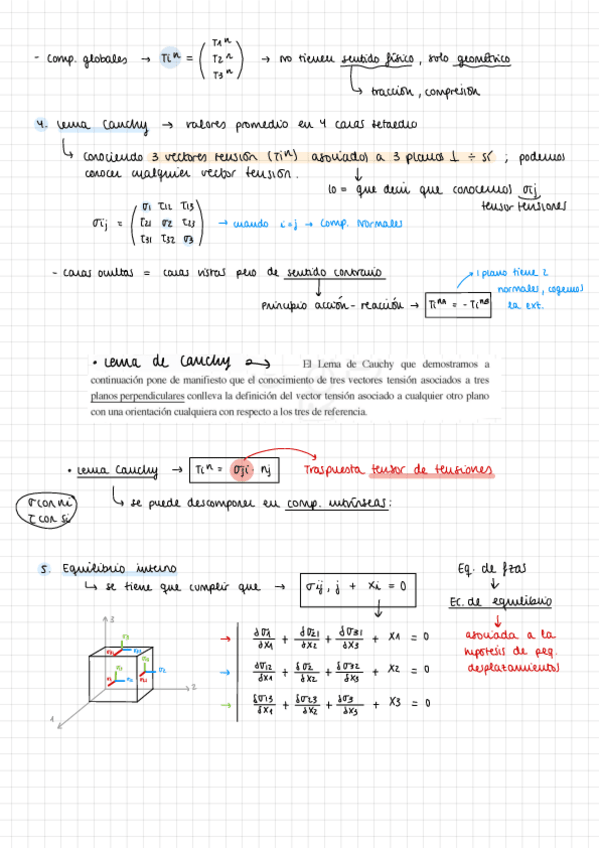 - Comp. globales → Ti^n = ( T1^n T2^n T3^n ) → no tienen sentido físico, solo geométrico
↳ tracción, compresión
4. Lema Cauchy → valores promedio en 4 caras tetaedro
↳ conociendo 3 vectores tensión (Ti^n) asociados a 3 planos ⊥ ÷ sí ; podemos
conocer cualquier vector tensión.
lo = que decir que conocemos σij
tensor tensiones
σij = ( σ1 τ12 τ13
τ21 σ2 τ23
τ31 τ32 σ3 ) → cuando i=j → Comp. Normales
- Caras ocultas = caras vistas pero de sentido contrario
Principio acción-reacción → Ti^nA = - Ti^nB
1 plano tiene 2
normales, cogemos
la ext.
• Lema de Cauchy → El Lema de Cauchy que demostramos a
continuación pone de manifiesto que el conocimiento de tres vectores tensión asociados a tres
planos perpendiculares conlleva la definición del vector tensión asociado a cualquier otro plano
con una orientación cualquiera con respecto a los tres de referencia.
• Lema Cauchy → Ti^n = σji · nj Traspuesta tensor de tensiones
↳ se puede descomponer en comp. intrínsecas:
σ con ni
τ con si
5. Equilibrio interno
↳ se tiene que cumplir que → σij,j + Xi = 0
Eq. de fzas
↓
Ec. de equilibrio
↓
asociada a la
hipótesis de peq.
desplazamientos
→ δσ1/δx1 + δσ21/δx2 + δσ31/δx3 + X1 = 0
→ δσ12/δx1 + δσ2/δx2 + δσ32/δx3 + X2 = 0
→ δσ13/δx1 + δσ23/δx2 + δσ3/δx3 + X3 = 0